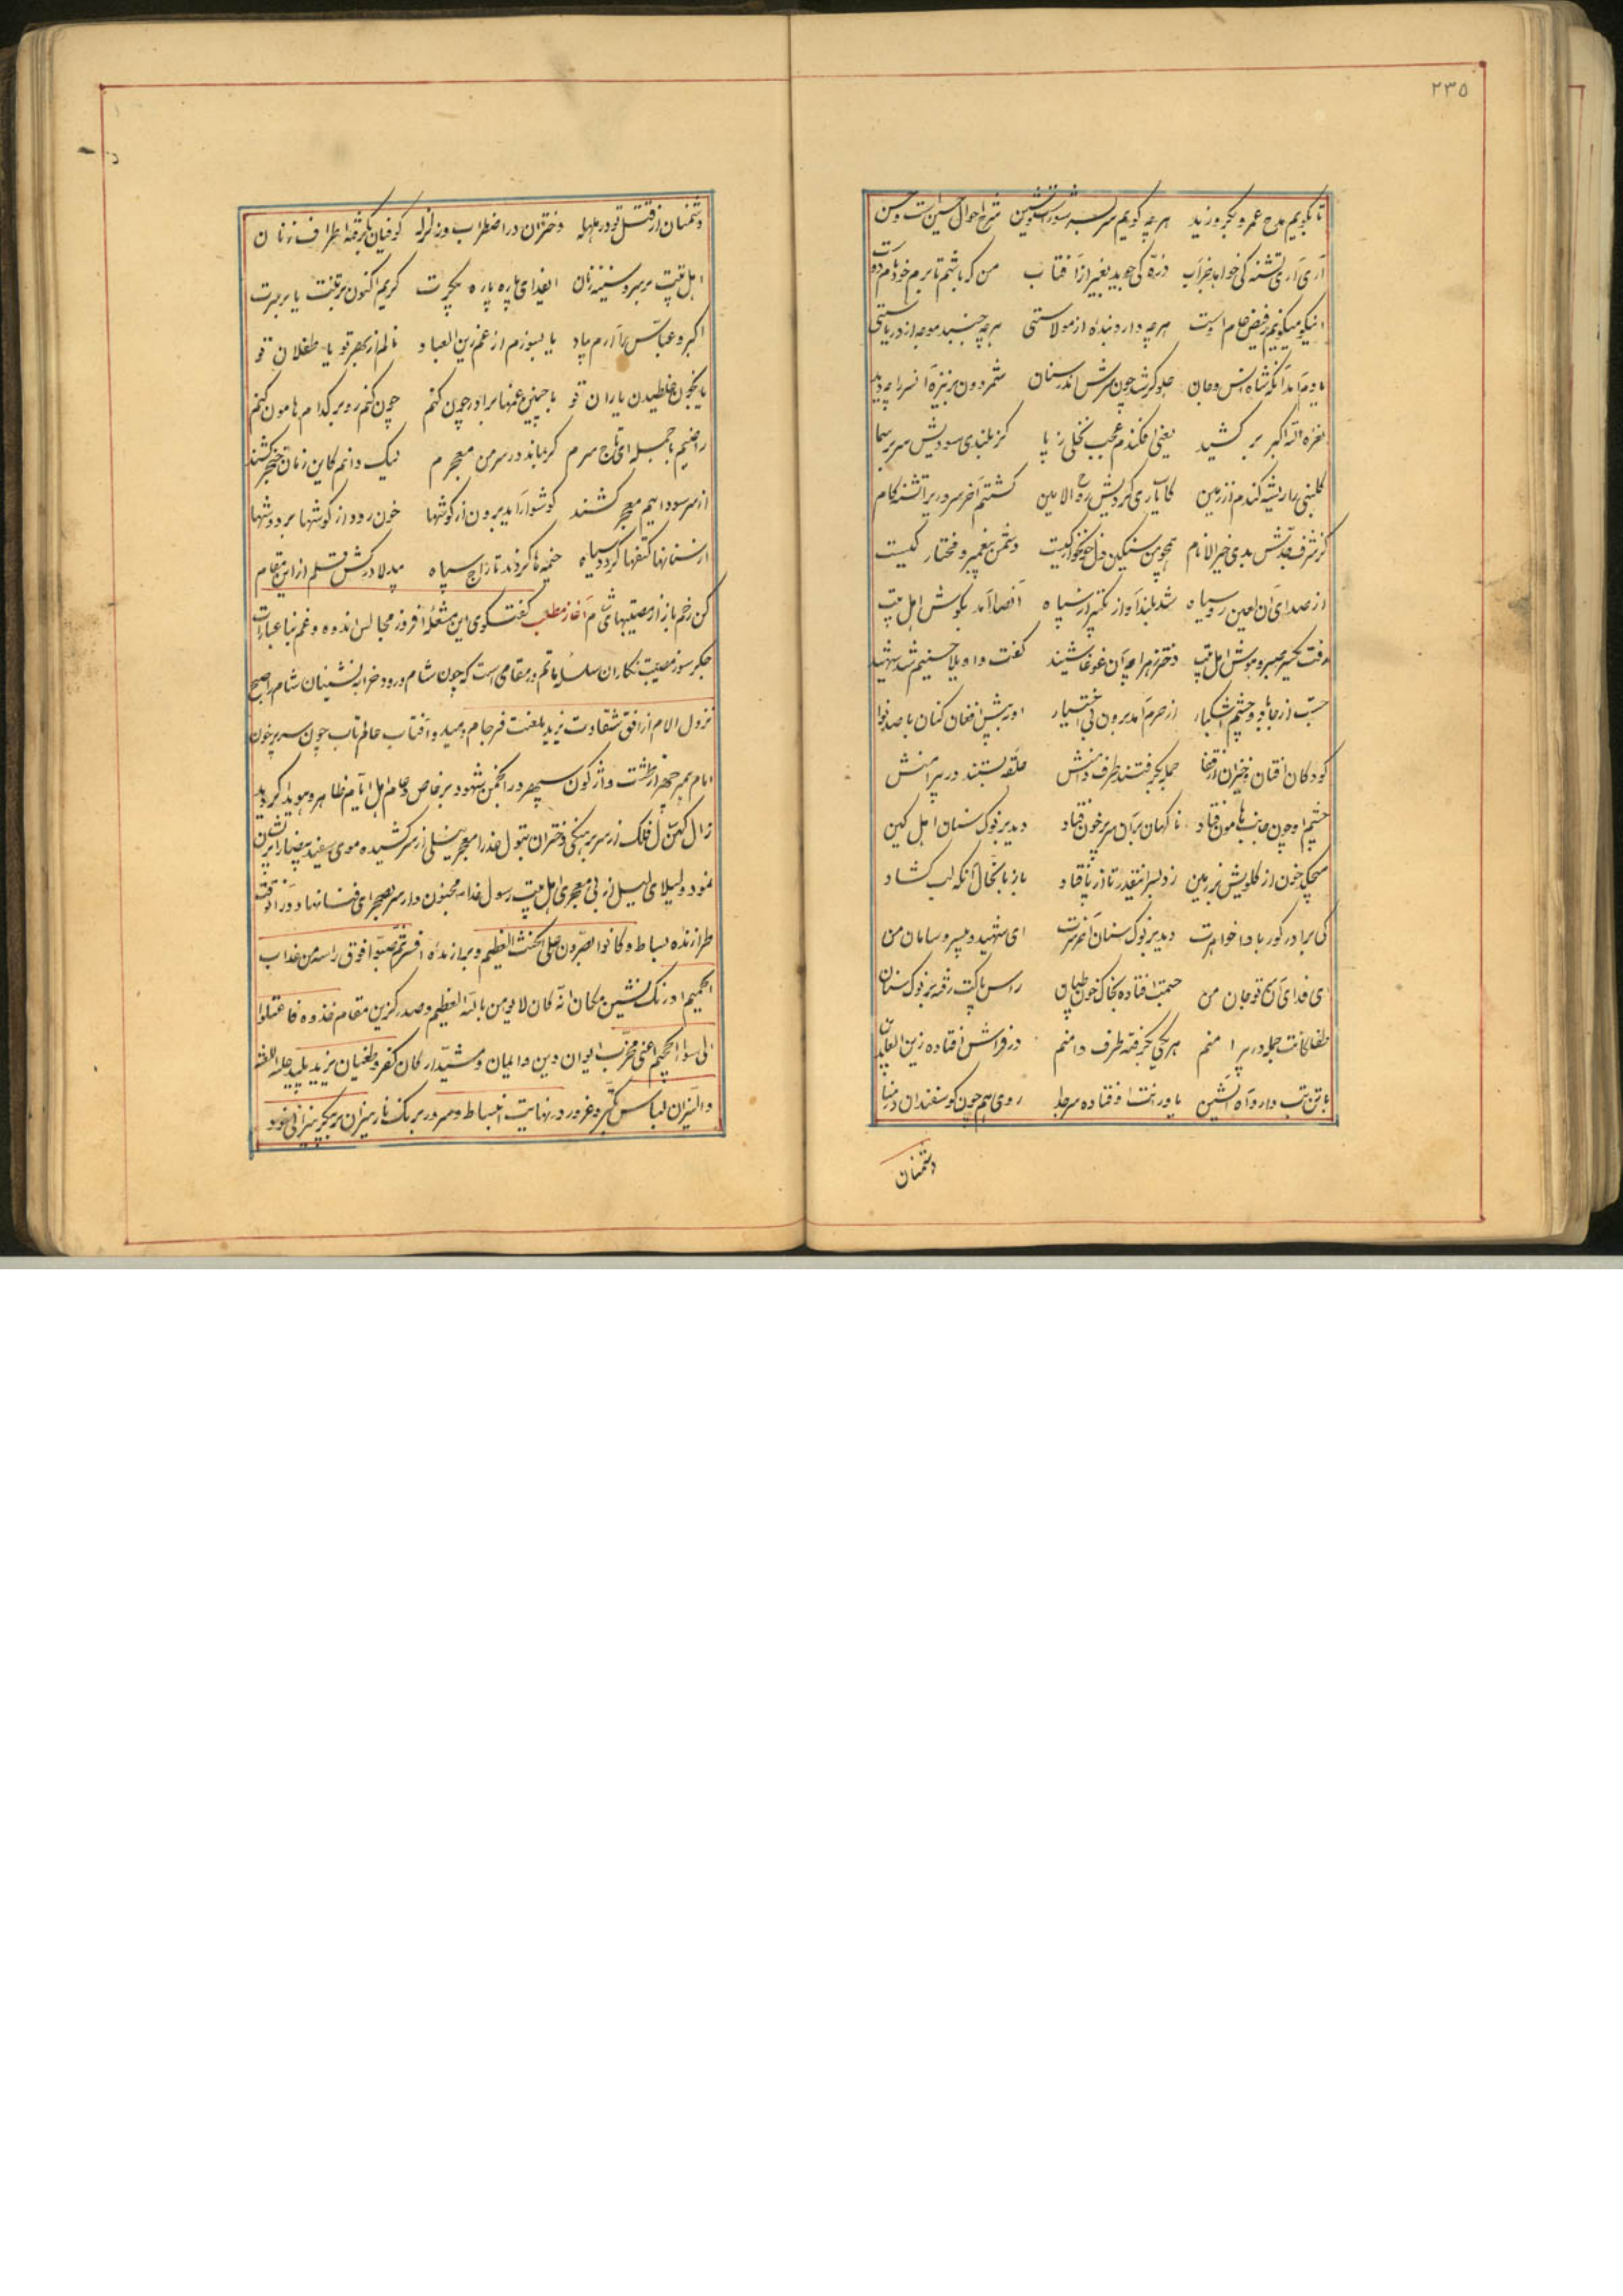 ۲۳۵
تا بگویم مدح عمرو و بکر و زید هرچه گویم سربسر شور است و شین شرح احوال حسین است و حسن
آری آری تشنه کی خواهد جز آب ذره کی جوید بغیر از آفتاب من که باشم تا برم خود نام
اینکه میگویم ز فیض عام اوست هرچه دارد بنده از مولاستی هرچه جنبد موجه از دریاستی
یادم آمد آنکه شاه انس و جان جلوه‌گر شد چون سرش اندر سنان شمر دون بر نیزه آن سر را چه دید
نعره الله اکبر بر کشید یعنی افکندم عجب نخلی ز پا کز بلندی سودیش سر بر سما
گلبنی را ریشه کندم از زمین کابیاری کردیش روح الامین کشتم آخر سروری را تشنه کام
کز شرف جدش بدی خیر الانام همچو من سنگین دل خونخوار کیست دشمن پیغمبر و مختار کیست
از صدای آن لعین روسیاه شد بلند آواز تکبیر از سپاه آنصدا آمد بگوش اهل بیت
رفت یکسر صبر و هوش اهل بیت دختر زهرا چه آن غوغا شنید گفت واویلا حسینم شد شهید
جست از جا با دو چشم اشکبار از حرم آمد برون بی اختیار او ز پیش افغان کنان با صد نوا
کودکان افتان و خیزان از قفا جمله بگرفتند طرف دامنش حلقه بستند در پیرامنش
چشم او چون جانب هامون فتاد ناگهان بر آن سر پر خون فتاد دید بر نوک سنان اهل کین
میچکد خون از گلویش بر زمین زد بسر آنقدر تا از پا فتاد باز با نخال آنکه لب گشاد
کی برادر کور بادا خواهرت دید بر نوک سنان آخر سرت ای شهید و بی سر و سامان من
ای فدای آن تو جان من جسمت افتاده بخاک و خون طپان راس پاکت رفته بر نوک سنان
طفلکانت جمله در پیرامنم هریکی بگرفته طرف دامنم در فراش افتاده زین العابدین
با تن تب دار و آه آتشین یاورانت اوفتاده سر جدا روی هم چون گوسفندان در منا
دشمنان
دشمنان از قتل تو در هلهله دختران در اضطراب و زلزله کوفیان بگرفته اطراف زنان
اهل بیت بر سر و سینه زنان ایفدای پاره پاره پیکرت گریم اکنون بر تنت یا بر سرت
اکبر و عباس را آرم بیاد یا بسوزم از غم زین العباد نالم از بهر تو یا طفلان تو
یا بخون غلطیدن یاران تو با چنین غمها برادر چون کنم چون کنم رو بر کدام هامون کنم
راضیم با جمله ای تاج سرم گر بماند در سر من معجرم لیک دانم کاین زمان خنجر کشند
از سر سودا هم معجر کشند گوشوار آید برون از گوشها خون رود از گوشها بر دوشها
از سنانها کتفها گردد سیاه خیمه‌ها گردند تاراج سپاه بیدلا درکش قلم از این مقام
کن رخم باز از مصیبتهای شام آغاز مطلب گفتگوی این مشعله افروز مجالس اندوه و غم بنا عبارات
جگر سوز مصیبت نگاران سلسله ماتم در مقامی است که چون شام ورود خرابه نشینان شام را صبح
نزول الام از افق شقاوت یزید بلعنت فرجام دمید و آفتاب عالمتاب چون سر پر خون
امام مهر چهر از طشت واژگون سپهر در انجمن شهود بر خاص و عام اهل ایام ظاهر و هویدا گردید
زال کهن سال فلک از سر برهنگی دختران بتول عذرا معجر نیلی از سر کشیده موی سفید بیضا را پریشان
نمود و لیلای لیل از بی معجری اهل بیت رسول خدا مجنون وار سر بصحرای فنا نهاد در آنوقت
طرازنده بساط و کانوا یصرون علی الحنث العظیم و برازنده افسر ثم صبوا فوق راسه من عذاب
الحمیم اورنگ نشین مکان انه کان لا یومن بالله العظیم و صدر گزین مقام خذوه فاعتلوه
الی سواء الجحیم اعنی مخرب ایوان دین و ایمان و مشید ارکان کفر و طغیان یزید پلید علیه اللعنه
والنیران لباس تکبر و غرور در نهایت انبساط و سرور